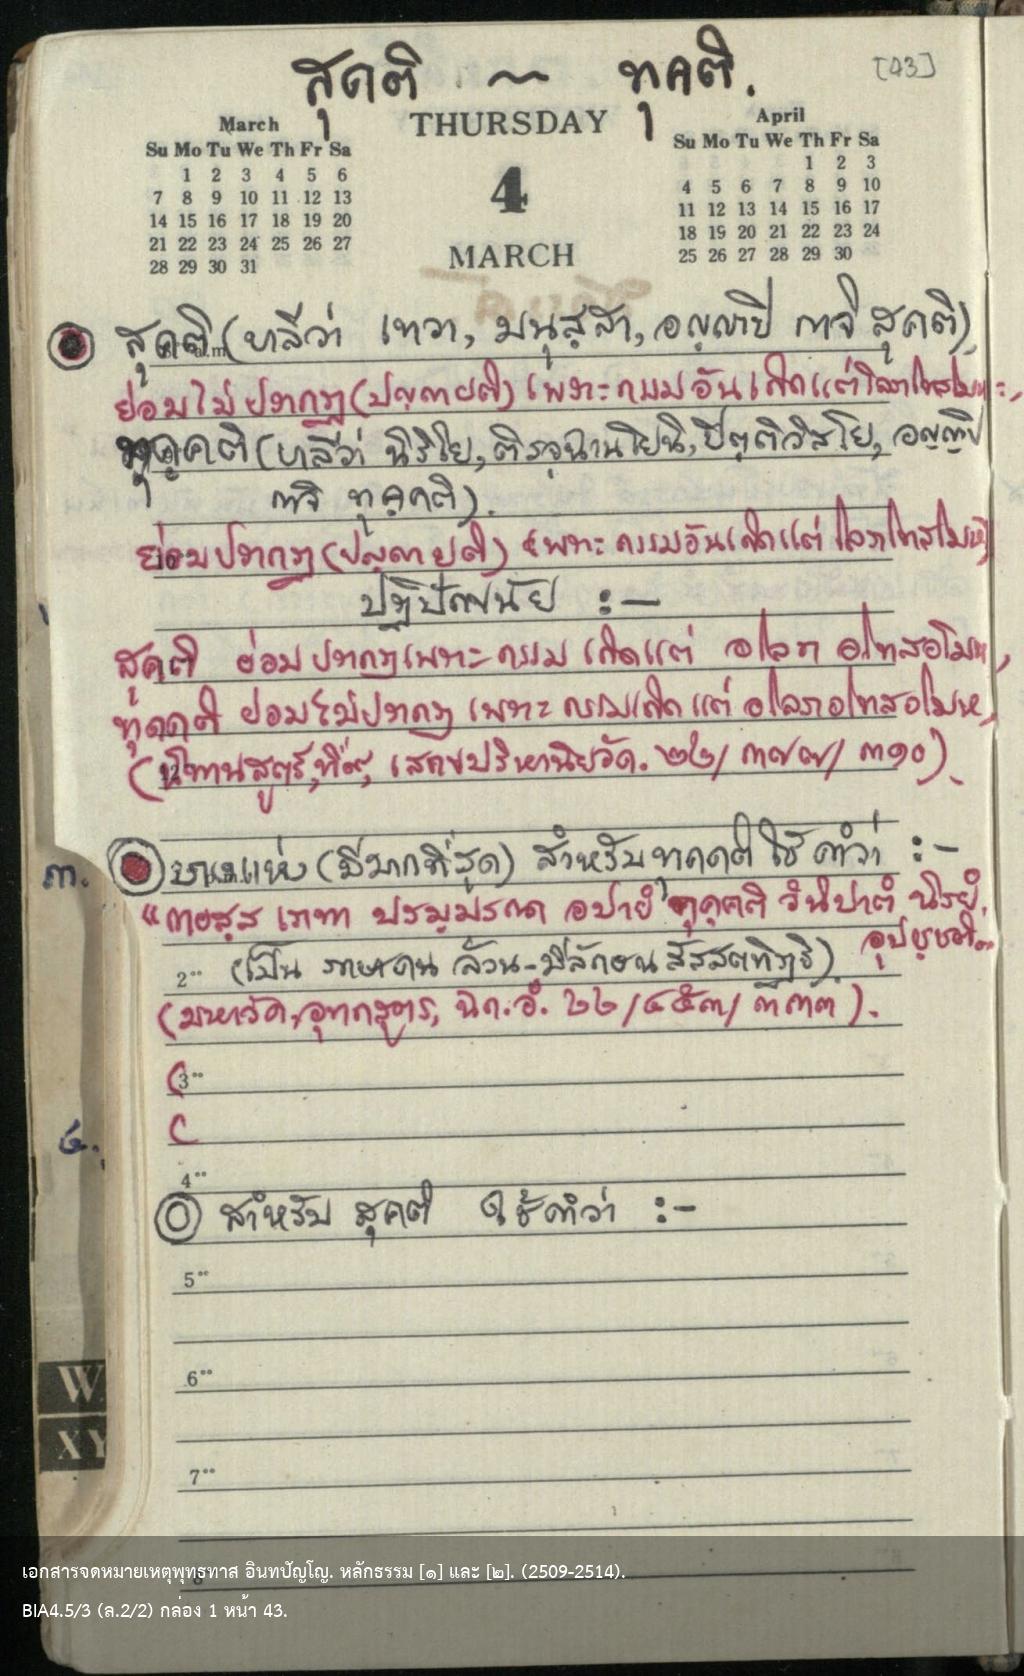 สุคติ ~ ทุคติ.
[43]
March
Su Mo Tu We Th Fr Sa
1 2 3 4 5 6
7 8 9 10 11 12 13
14 15 16 17 18 19 20
21 22 23 24 25 26 27
28 29 30 31
THURSDAY
4
MARCH
April
Su Mo Tu We Th Fr Sa
1 2 3
4 5 6 7 8 9 10
11 12 13 14 15 16 17
18 19 20 21 22 23 24
25 26 27 28 29 30
สุคติ (บาลีว่า เทวา, มนุสฺสา, อญฺญาปิ กาจิ สุคติ)
ย่อมไม่ปรากฏ (ปญฺญายติ) เพราะกรรมอันเกิดแต่โลภโทสโมหะ,
ทุคฺคติ (บาลีว่า นิริโย, ติรจฺฉานโยนิ, ปิตฺติวิสโย, อญฺญาปิ
กาจิ ทุคฺคติ).
ย่อมปรากฏ (ปญฺญายติ) เพราะกรรมอันเกิดแต่ โลภโทสโมห
ปฏิปักขนัย :—
สุคติ ย่อมปรากฏเพราะกรรม เกิดแต่ อโลภ อโทสอโมห,
ทุคคติ ย่อมไม่ปรากฏ เพราะ กรรมเกิดแต่ อโลภอโทสอโมห,
(นิทานสูตร, ที่๙, เสกขปริหานิยวัค. ๒๒/๓๗๗/๓๑๐).
๓.
บางแห่ง (มีมากที่สุด) สำหรับทุคคติ ใช้คำว่า :—
"กายสฺส เภทา ปรมฺมรณา อปายํ ทุคฺคติ วินิปาตํ นิรยํ,
อุปปชฺชติ"
2°° (เป็น ล้วน-มีลักษณ สัสสตทิฏฐิ).
(มหาวัค, สูตร, ฉก. อํ. ๒๒/๔๕๓/๓๓๓).
(3°°
(
๔.
4°°
สำหรับ สุคติ ใช้คำว่า :—
5°°
6°°
W
XY
7°°
เอกสารจดหมายเหตุพุทธทาส อินทปัญโญ. หลักธรรม [๑] และ [๒]. (2509-2514).
BIA4.5/3 (ล.2/2) กล่อง 1 หน้า 43.